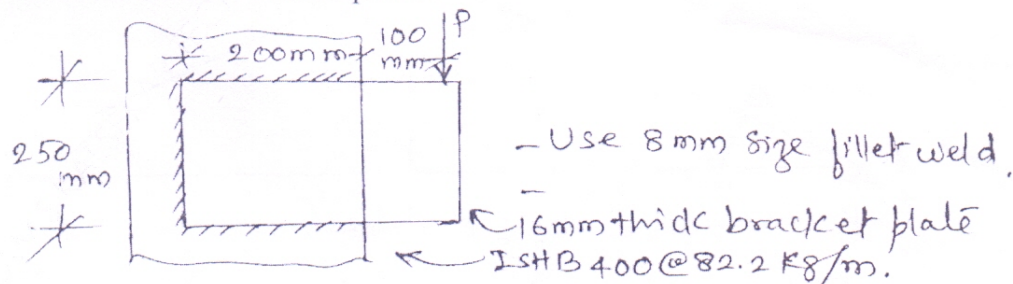 P
200mm
100
mm
250
mm
- Use 8 mm size fillet weld.
-
16mm thick bracket plate
ISHB 400 @ 82.2 kg/m.